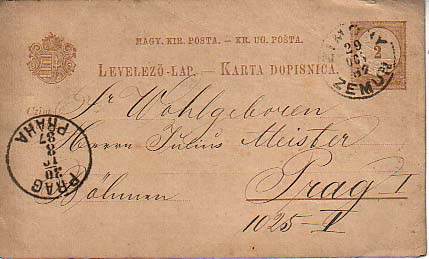 MAGY. KIR. POSTA. – KR. UG. POŠTA.
LEVELEZŐ-LAP. – KARTA DOPISNICA.
2
ZIMONY
29
OCT
ZEMUN
Sr Wohlgeboren
Herrn Julius Meister
Prag I
Böhmen
1025-I
PRAG
30
10
8
87
PRAHA